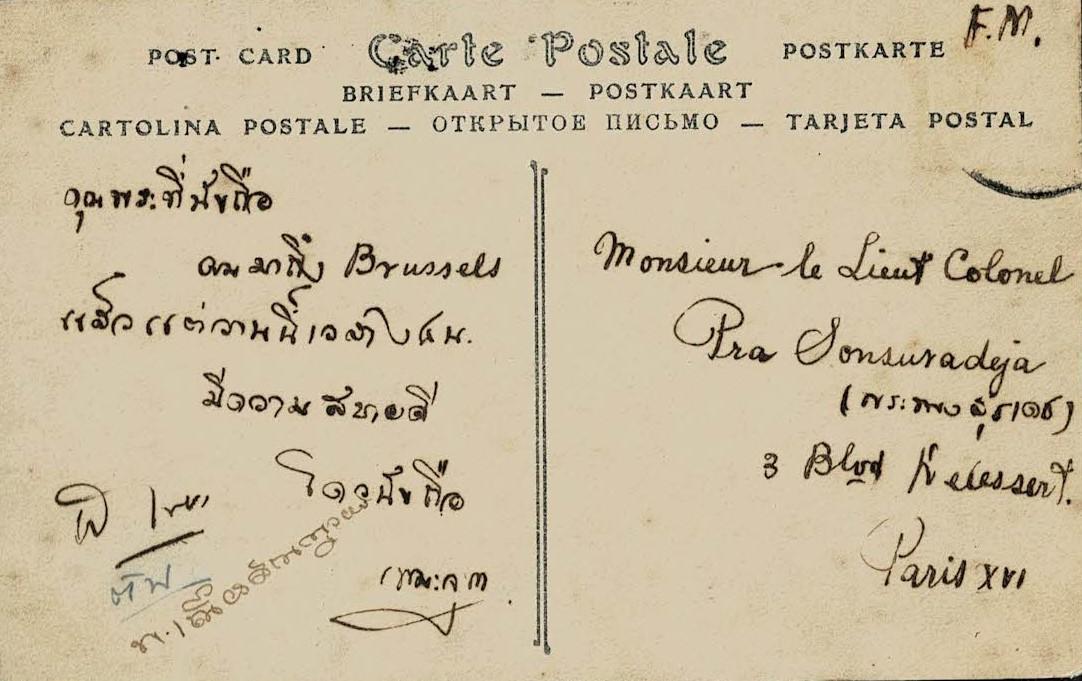 F.M.
POST CARD Carte Postale POSTKARTE
BRIEFKAART — POSTKAART
CARTOLINA POSTALE — ОТКРЫТОЕ ПИСЬМО — TARJETA POSTAL
คุณพระที่นับถือ
ผมมาถึง Brussels
แล้วแต่วานนี้เวลา
มีความสบายดี
โดยนับถือ
Monsieur le Lieut Colonel
Pra Sonsuradeja
(พระทรงสุรเดช)
3 Blvd Delessert.
Paris XVI